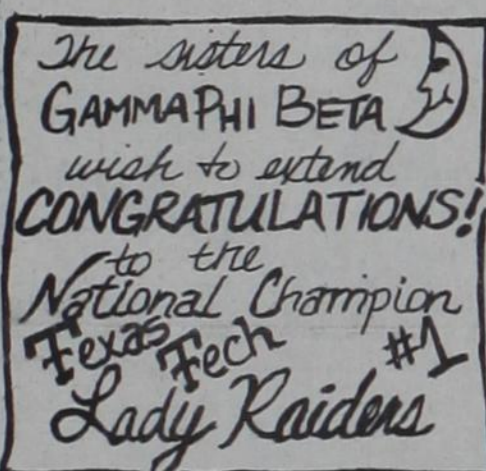 The sisters of
GAMMA PHI BETA
wish to extend
CONGRATULATIONS!
to the
National Champion
Texas Tech #1
Lady Raiders